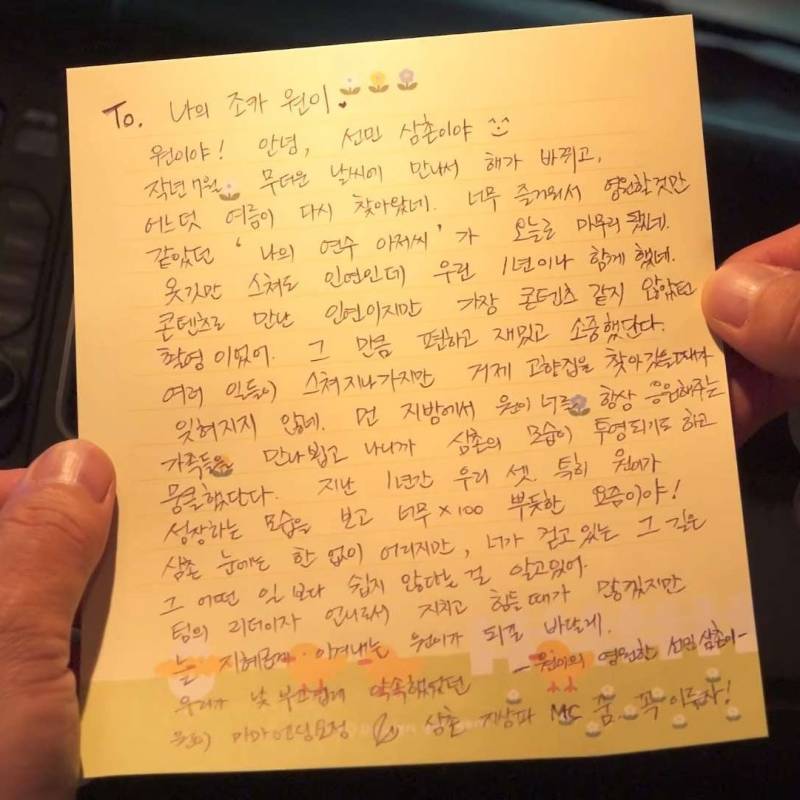 To. 나의 조카 원이
원이야! 안녕, 선민 삼촌이야
작년 7월 무더운 날씨에 만나서 해가 바뀌고,
어느덧 여름이 다시 찾아왔네. 너무 즐거워서 영원할것만
같았던 '나의 연수 아저씨'가 오늘로 마무리 됐네.
옷깃만 스쳐도 인연인데 우린 1년이나 함께 했네.
콘텐츠로 만난 인연이지만 가장 콘텐츠 같지 않았던
촬영이었어. 그 만큼 편하고 재밌고 소중했단다.
여러 일들이 스쳐지나가지만 거제 고향집을 찾아갔을때가
잊혀지지 않네. 먼 지방에서 원이 너를 항상 응원해주는
가족들을 만나 뵙고 나니까 삼촌의 모습이 투영되기도 하고
뭉클했단다. 지난 1년간 우리 셋. 특히 원이가
성장하는 모습을 보고 너무×100 뿌듯한 요즘이야!
삼촌 눈에는 한 없이 어리지만, 너가 걷고있는 그 길은
그 어떤 일 보다 쉽지 않다는 걸 알고있어.
팀의 리더이자 언니로서 지치고 힘들때가 많겠지만
늘 지혜롭게 이겨내는 원이가 되길 바랄게.
-원이의 영원한 선민 삼촌이-
우리가 낯 부끄럽게 약속했었던
원이 마마 엔딩요정 삼촌 지상파 MC 꿈 꼭 이루자!